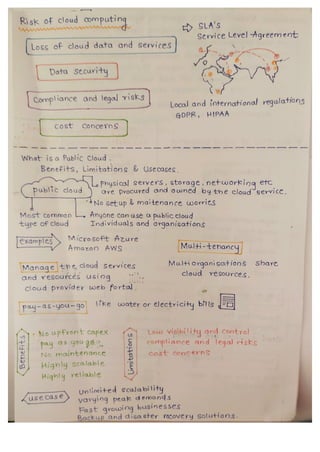 Risk of cloud computing
Loss of cloud data and services
Data Security
Compliance and legal risks
Cost Concerns
⇒ SLA's
Service Level Agreement
Local and international regulations
GDPR, HIPAA
What is a Public Cloud.
Benefits, Limitations & Usecases.
public cloud
Physical servers, storage, networking etc
are procured and owned by the cloud service.
No setup & maitenance worries
Most common
type of cloud
Anyone can use a public cloud
Individuals and organisations
Examples
Microsoft Azure
Amazon AWS
Multi-tenancy
Multi organisations share
cloud resources.
Manage the cloud services
and resources using
cloud provider web portal
pay-as-you-go like water or electricity bills
Benefits
No upfront capex
pay as you go
No maintenance
Highly scalable
Highly reliable
Limitations
Low visibility and control
compliance and legal risks
cost concerns
usecase
Unlimited scalability
varying peak demands
Fast growing businesses
Backup and disaster recovery solutions.